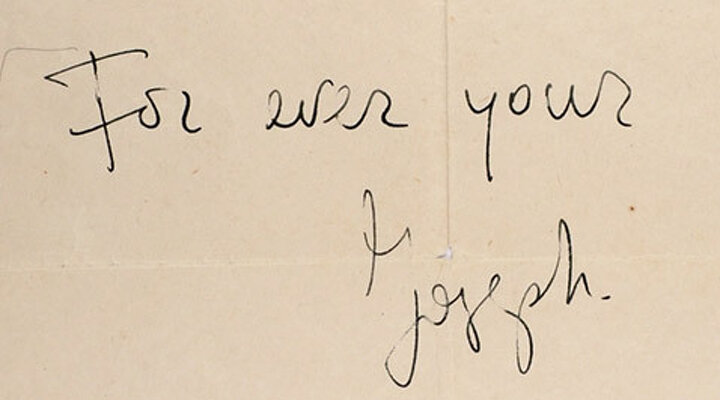 For ever your
Joseph.